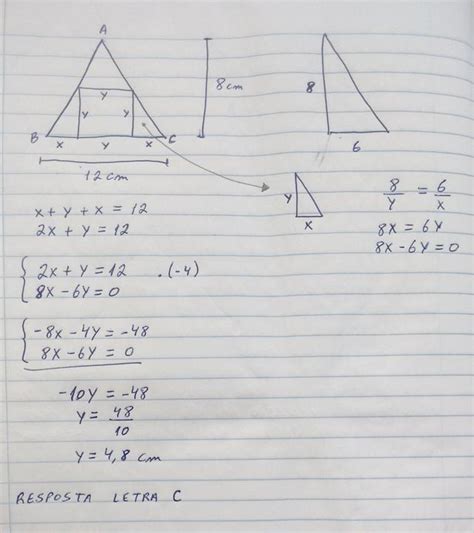 A
8 cm
8
6
y
y y
B C
x y x
12 cm
y
x
8/y = 6/x
8x = 6y
8x - 6y = 0
x + y + x = 12
2x + y = 12
2x + y = 12 .(-4)
8x - 6y = 0
-8x - 4y = -48
8x - 6y = 0
-10y = -48
y = 48/10
y = 4,8 cm
RESPOSTA LETRA C